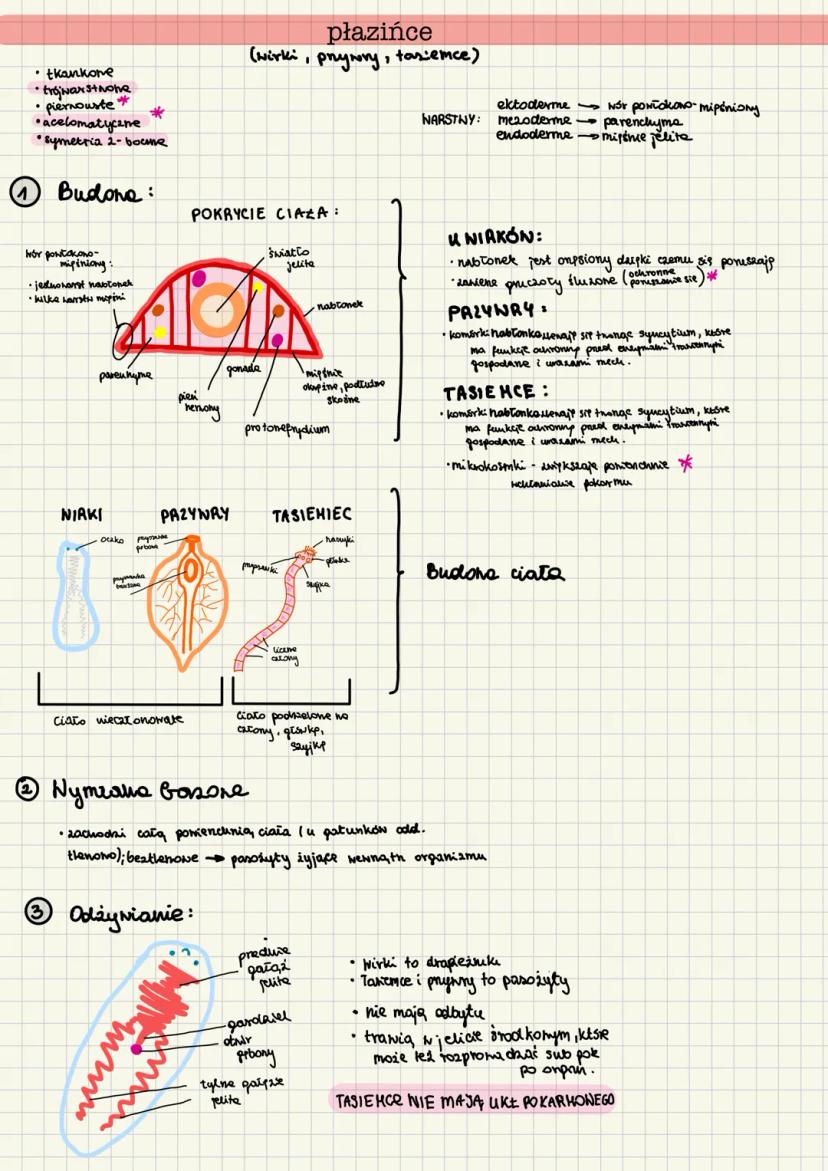 płazińce
(wirki, przywry, tasiemce)
• tkankowe
• trójwarstwowe
• pierwouste *
• acelomatyczne *
• symetria 2-boczna
WARSTWY:
ektoderma → wór powłokowo-mięśniowy
mezoderma → parenchyma
endoderma → mięśnie jelita
1 Budowa:
POKRYCIE CIAŁA:
wór powłokowo-
mięśniowy:
• jednowarst nabłonek
• kilka warstw mięśni
światło
jelita
nabłonek
parenchyma
pień
nerwowy
gonada
protonefrydium
mięśnie
okrężne, podłużne
skośne
U WIRKÓW:
• nabłonek jest orzęsiony dzięki czemu się poruszają
• zawiera gruczoły śluzowe (ochronne
poruszanie się) *
PRZYWRY:
• komórki nabłonka zlewają się tworząc syncytium, które
ma funkcje ochronną przed enzymami trawiennymi
gospodarza i urazami mech.
TASIEMCE:
• komórki nabłonka zlewają się tworząc syncytium, które
ma funkcje ochronną przed enzymami trawiennymi
gospodarza i urazami mech.
• mikrokosmki - zwiększają powierzchnie *
wchłaniania pokarmu
WIRKI
PRZYWRY
TASIEMIEC
oczko
przyssawka
gębowa
przyssawka
brzuszna
haczyki
przyssawki
główka
szyjka
liczne
człony
Budowa ciała
Ciało nieczłonowate
Ciało podzielone na
człony, główkę,
szyjkę
2 Wymiana gazowa
• zachodzi całą powierzchnią ciała (u gatunków odd.
tlenowo); beztlenowe → pasożyty żyjące wewnątrz organizmu
3 Odżywianie:
przednia
gałąź
jelita
gardziel
otwór
gębowy
tylne gałęzie
jelita
• Wirki to drapieżniki
• Tasiemce i przywry to pasożyty
• nie mają odbytu
• trawią w jelicie środkowym, które
może też rozprowadzać sub pok
po organ.
TASIEMCE NIE MAJĄ UKŁ POKARMOWEGO